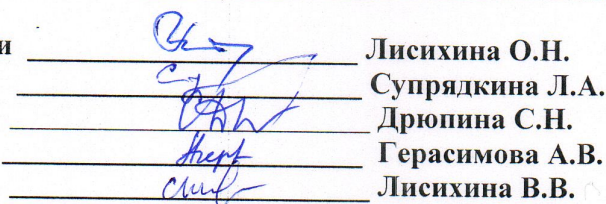 и Лисихина О.Н.
Супрядкина Л.А.
Дрюпина С.Н.
Герасимова А.В.
Лисихина В.В.